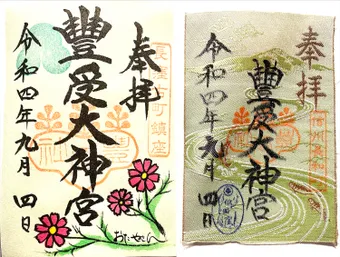 奉拝
豐受大神宮
令和四年九月四日
奉拝
豐受大神宮
令和四年九月四日